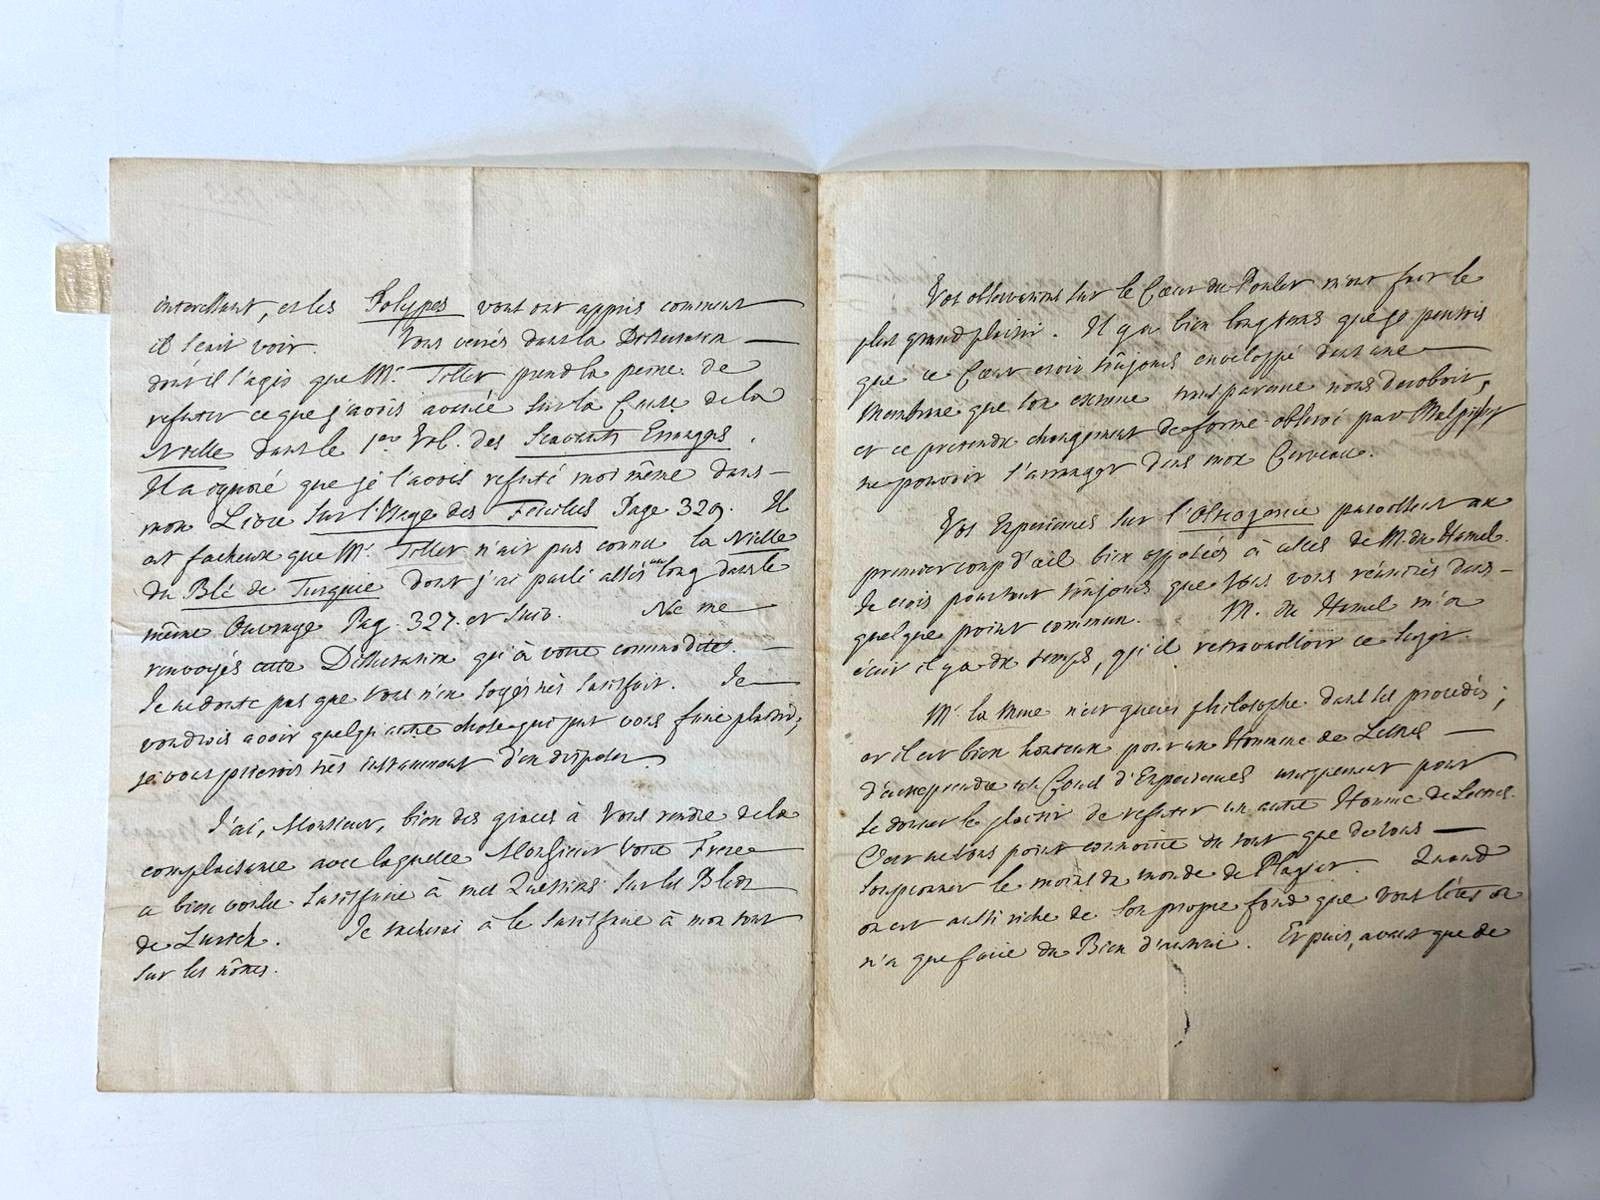 interessant, et les Polypes vous ont appris comment
il sçait voir. Vous verrés dans la Dissertation
dont il s'agit que Mr. Tillet prend la peine de
refuter ce que j'avois avancé sur la Cause de la
Nielle dans le 1er Vol. des Scavants Etrangers.
Il a ignoré que je l'avois refuté moi même dans
mon Livre sur l'Usage des Feuilles Page 329. Il
est facheux que Mr. Tillet n'ait pas connu la Nielle
du Blé de Turquie dont j'ai parlé assés au long dans le
même Ouvrage Pag. 327. et suiv. Ne me
renvoyés cette Dissertation qu'à votre commodité.
Je ne doute pas que vous n'en soyés très satisfait. Je
voudrois avoir quelqu'autre chose qui put vous faire plaisir;
je vous prierois très instamment d'en disposer.
J'ai, Monsieur, bien des graces à vous rendre de la
complaisance avec laquelle Monsieur votre Frere
a bien voulu satisfaire à mes Questions sur les Bleds
de Zurich. Je tacherai à le satisfaire à mon tour
sur les nôtres.
Vos observations sur le Cœur du Poulet m'ont fait le
plus grand plaisir. Il y a bien longtems que je pensois
que ce Cœur etoit toûjours enveloppé dans une
Membrane que son extreme transparence nous deroboit,
et ce pretendu changement de forme observé par Malpighi
ne pouvoit s'arranger dans mon Cerveau.
Vos Experiences sur l'Osteogenie paroissent au
premier coup d'œil bien opposées à celles de M. du Hamel.
Je crois pourtant toûjours que vous vous réunirés dans
quelque point commun. M. du Hamel m'a
écrit il y a du temps, qu'il retravailloit ce sujet.
Mr. la Mure n'est gueres philosophe dans ses procedés;
et il est bien honteux pour un Homme de Lettres
d'entreprendre un Cours d'Experiences uniquement pour
se donner le plaisir de refuter un autre Homme de Lettres.
C'est ne vous point connoitre du tout que de vous
soupçonner le moins du monde de Plagiat. Quand
on est aussi riche de son propre fond que vous l'êtes on
n'a que faire du Bien d'autrui. Et puis, avant que de